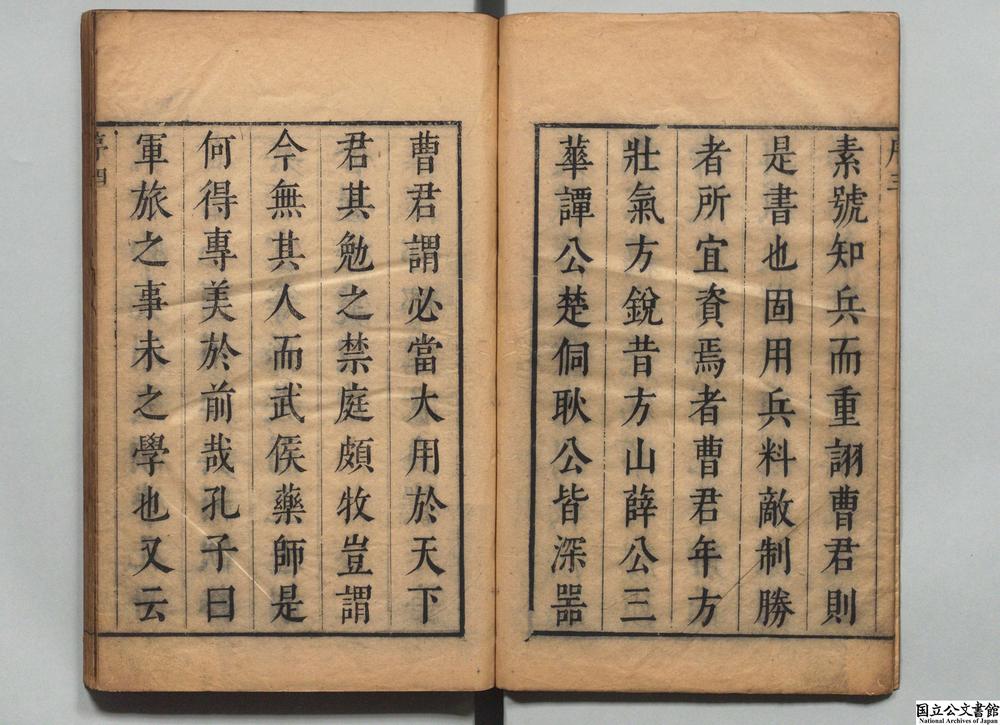 素號知兵而重詡曹君則
是書也固用兵料敵制勝
者所宜資焉者曹君年方
壯氣方銳昔方山薛公三
華譚公楚侗耿公皆深噐
曹君謂必當大用於天下
君其勉之禁庭頗牧豈謂
今無其人而武侯藥師是
何得專美於前哉孔子曰
軍旅之事未之學也又云
序四
国立公文書館
National Archives of Japan